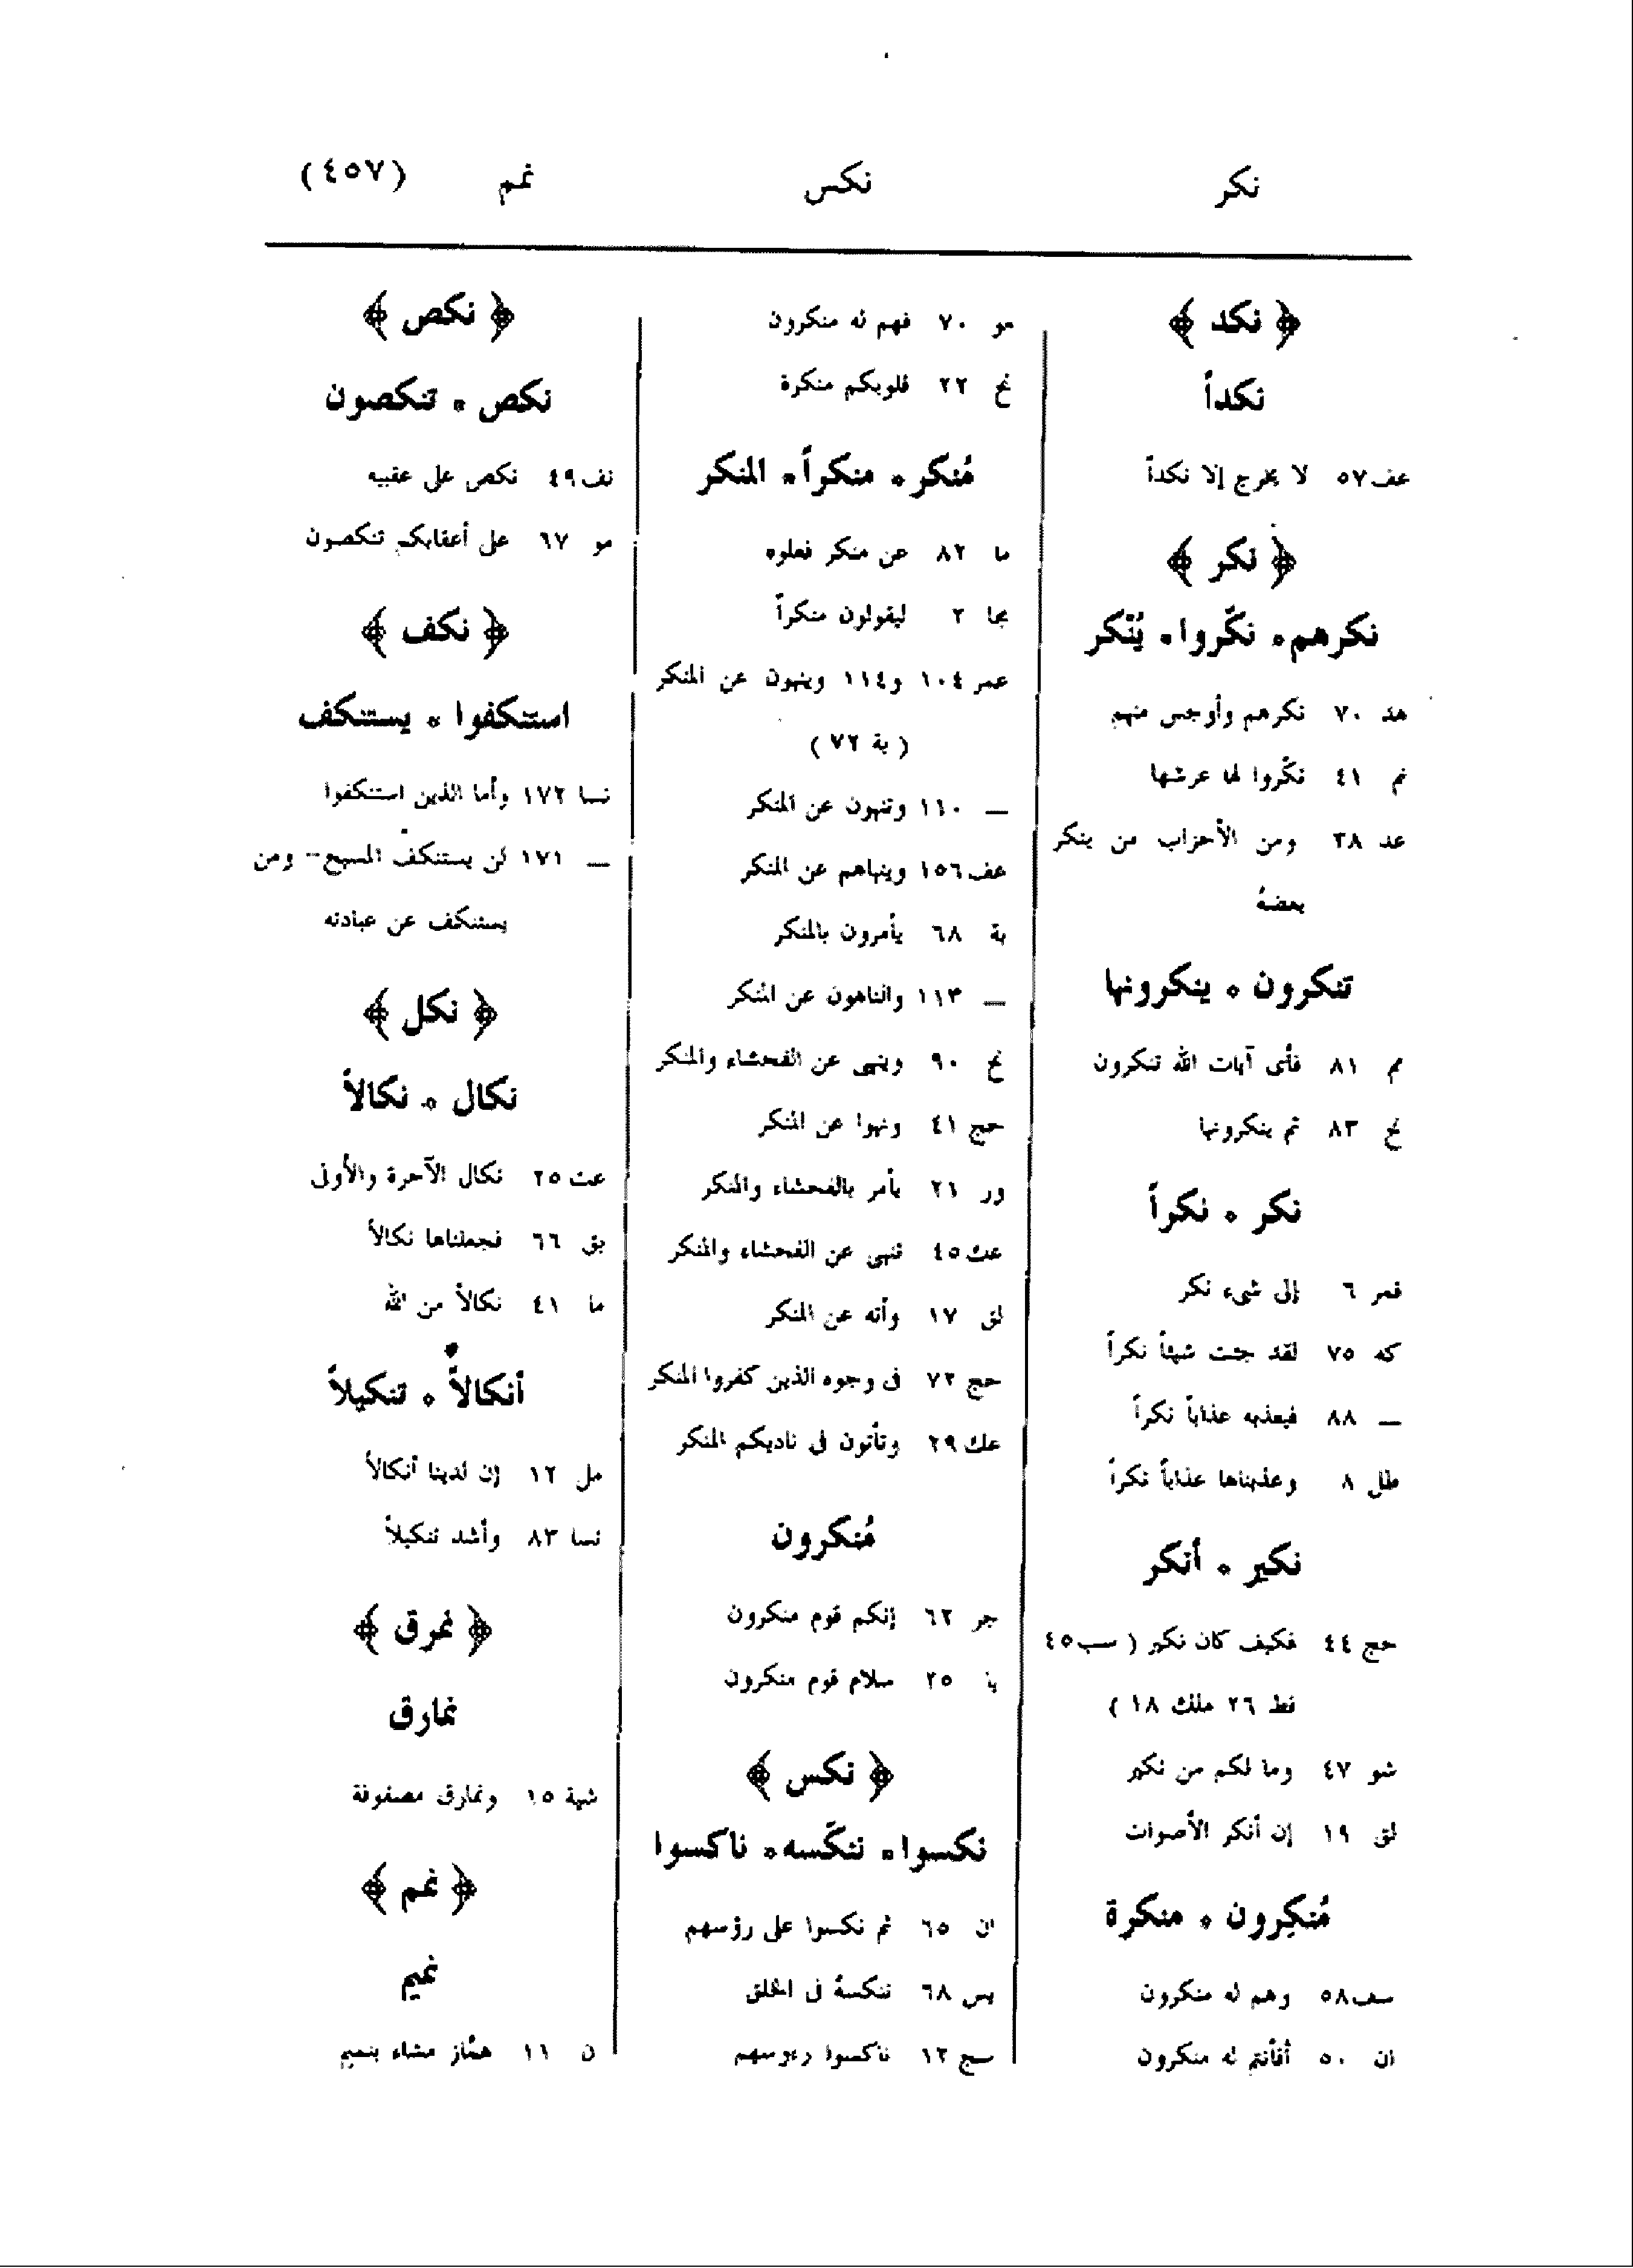 نكر نكس نمم (٤٥٧)
﴿ نكد ﴾
نكداً
عف ٥٧ لا يخرج إلا نكداً
﴿ نكر ﴾
نكرهم ٥ نكّروا ٥ يُنْكر
هد ٧٠ نكرهم وأوجس منهم
نم ٤١ نكّروا لها عرشها
عد ٣٨ ومن الأحزاب من ينكر
بعضهُ
تنكرون ٥ ينكرونها
مم ٨١ فأى آيات الله تنكرون
نح ٨٣ ثم ينكرونها
نكر ٥ نكراً
قمر ٦ إلى شىء نكر
كه ٧٥ لقد جئت شيئاً نكراً
ــ ٨٨ فيعذبه عذاباً نكراً
طل ٨ وعذبناها عذاباً نكراً
نكير ٥ أنكر
حج ٤٤ فكيف كان نكير ( سب ٤٥
فط ٢٦ ملك ١٨ )
شو ٤٧ وما لكم من نكير
لق ١٩ إن أنكر الأصوات
مُنكِرون ٥ منكرة
سف ٥٨ وهم له منكرون
ان ٥٠ أفأنتم له منكرون
مو ٧٠ فهم له منكرون
نح ٢٢ قلوبكم منكرة
مُنكر ٥ منكراً ٥ المنكر
ما ٨٢ عن منكر فعلوه
مجا ٢ ليقولون منكراً
عمر ١٠٤ و١١٤ وينهون عن المنكر
( بة ٧٢ )
ــ ١١٠ وتنهون عن المنكر
عف ١٥٦ وينهاهم عن المنكر
بة ٦٨ يأمرون بالمنكر
ــ ١١٣ والناهون عن المنكر
نح ٩٠ وينهى عن الفحشاء والمنكر
حج ٤١ ونهوا عن المنكر
ور ٢١ يأمر بالفحشاء والمنكر
عك ٤٥ تنهى عن الفحشاء والمنكر
لق ١٧ وأنه عن المنكر
حج ٧٢ فى وجوه الذين كفروا المنكر
عك ٢٩ وتأتون فى ناديكم المنكر
مُنكرون
جر ٦٢ إنكم قوم منكرون
يا ٢٥ سلام قوم منكرون
﴿ نكس ﴾
نكسوا ٥ ننكّسه ٥ ناكسوا
ان ٦٥ ثم نكسوا على رؤسهم
يس ٦٨ ننكسهُ فى الخلق
سج ١٢ ناكسوا رءوسهم
﴿ نكص ﴾
نكص ٥ تنكصون
نف ٤٩ نكص على عقبيه
مو ٦٧ على أعقابكم تنكصون
﴿ نكف ﴾
استنكفوا ٥ يستنكف
نسا ١٧٢ وأما الذين استنكفوا
ــ ١٧١ لن يستنكف المسيح -- ومن
يستنكف عن عبادته
﴿ نكل ﴾
نكال ٥ نكالاً
عت ٢٥ نكال الآخرة والأولى
بق ٦٦ فجعلناها نكالاً
ما ٤١ نكالاً من الله
أنكالاً ٥ تنكيلاً
مل ١٢ إن لدينا أنكالاً
نسا ٨٣ وأشد تنكيلاً
﴿ نمرق ﴾
نمارق
شية ١٥ ونمارق مصفوفة
﴿ نمم ﴾
نميم
ن ١١ همّاز مشاء بنميم